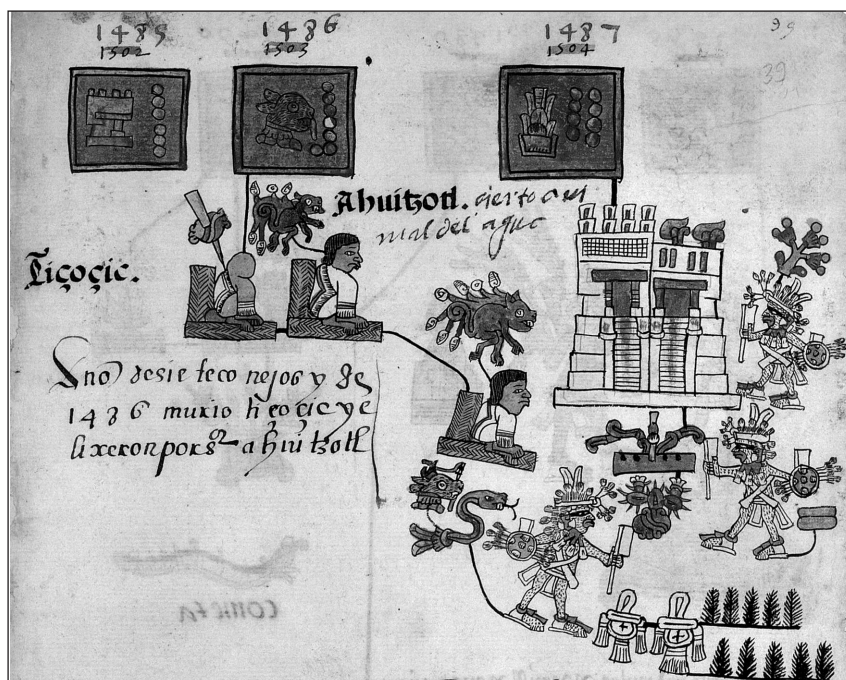 1485 1486 1487
1502 1503 1504
39
39
Ahuitzotl. cierto ani
mal del agua
Tiçoçic.
Año desiete conejos y de
1486 murio tiçoçic y e
lixeron por sr ahuitzotl